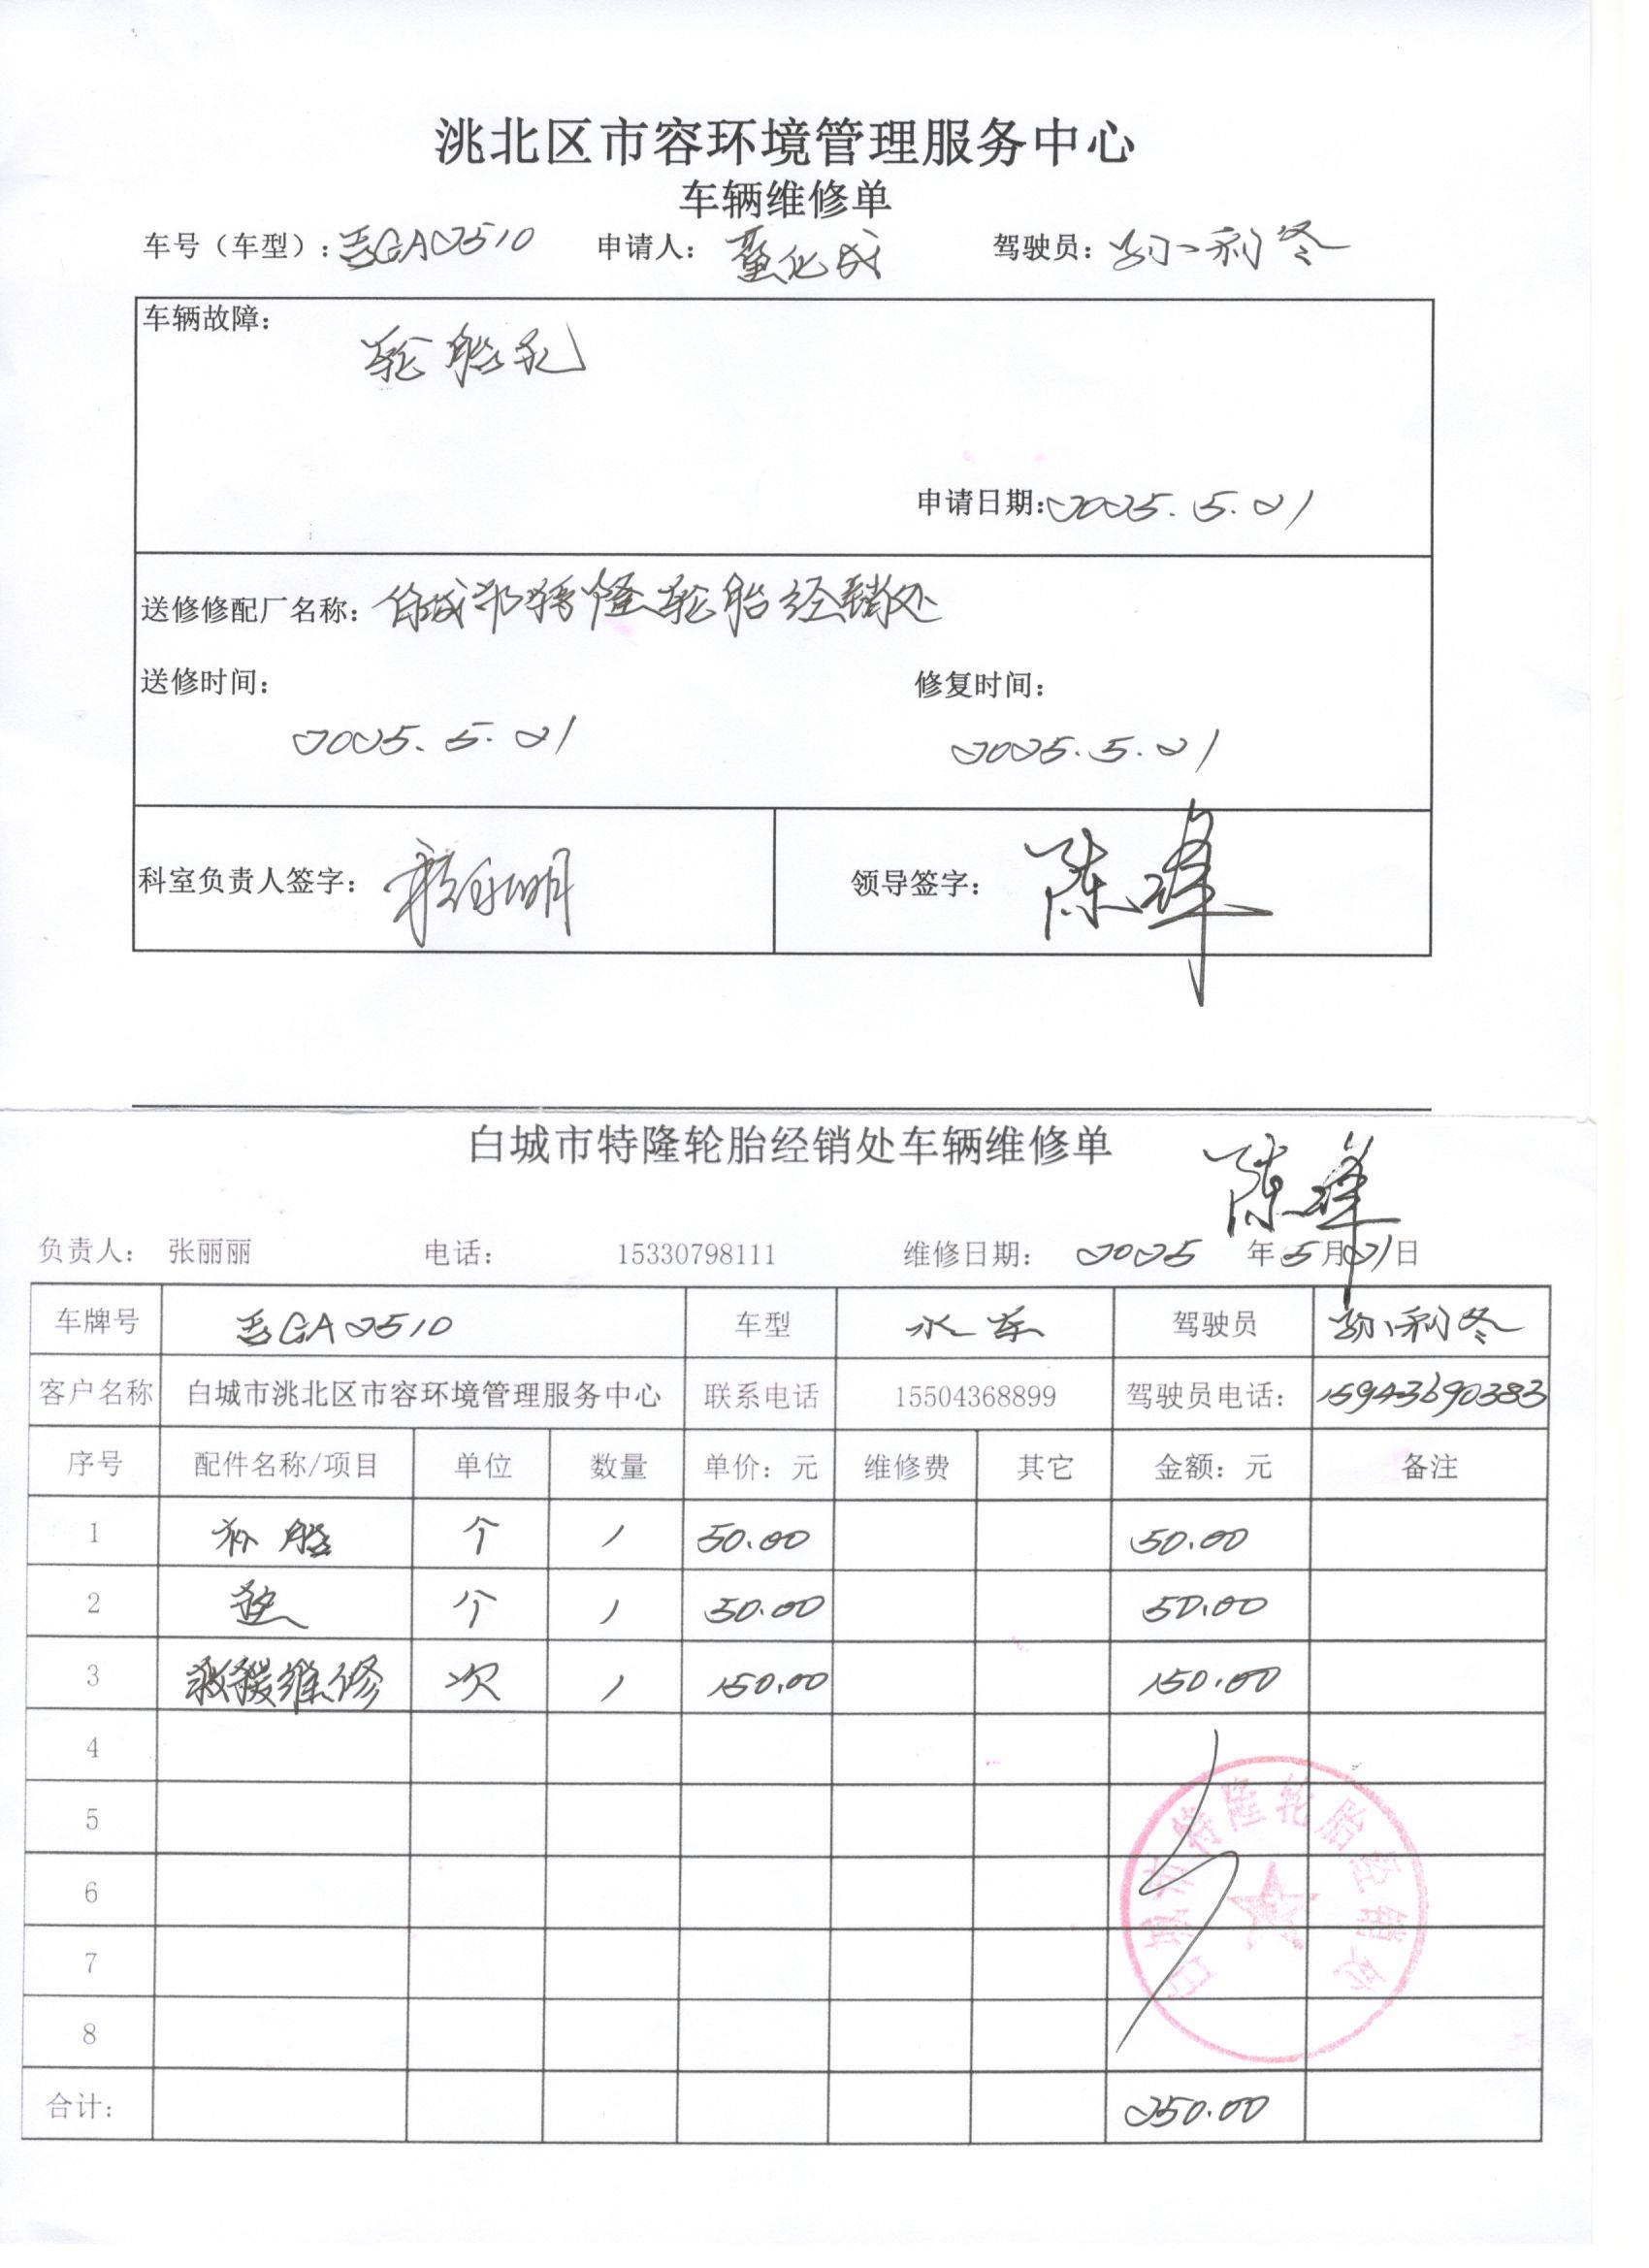 洮北区市容环境管理服务中心
车辆维修单
车号（车型）: 吉GA2510 申请人: 董化成 驾驶员: 孙利冬
车辆故障:
轮胎孔
申请日期: 2025.5.21
送修修配厂名称: 白城市特隆轮胎经销处
送修时间: 修复时间:
2025.5.21 2025.5.21
科室负责人签字: 领导签字: 陈峰
白城市特隆轮胎经销处车辆维修单
陈峰
负责人: 张丽丽 电话: 15330798111 维修日期: 2025 年 5 月 21 日
车牌号 吉GA2510 车型 水车 驾驶员 孙利冬
客户名称 白城市洮北区市容环境管理服务中心 联系电话 15504368899 驾驶员电话: 15943690383
序号 配件名称/项目 单位 数量 单价: 元 维修费 其它 金额: 元 备注
1 补胎 个 1 50.00 50.00
2 个 1 50.00 50.00
3 救援维修 次 1 150.00 150.00
4
5
6
7
8
合计: 250.00
白城市特隆轮胎经销处